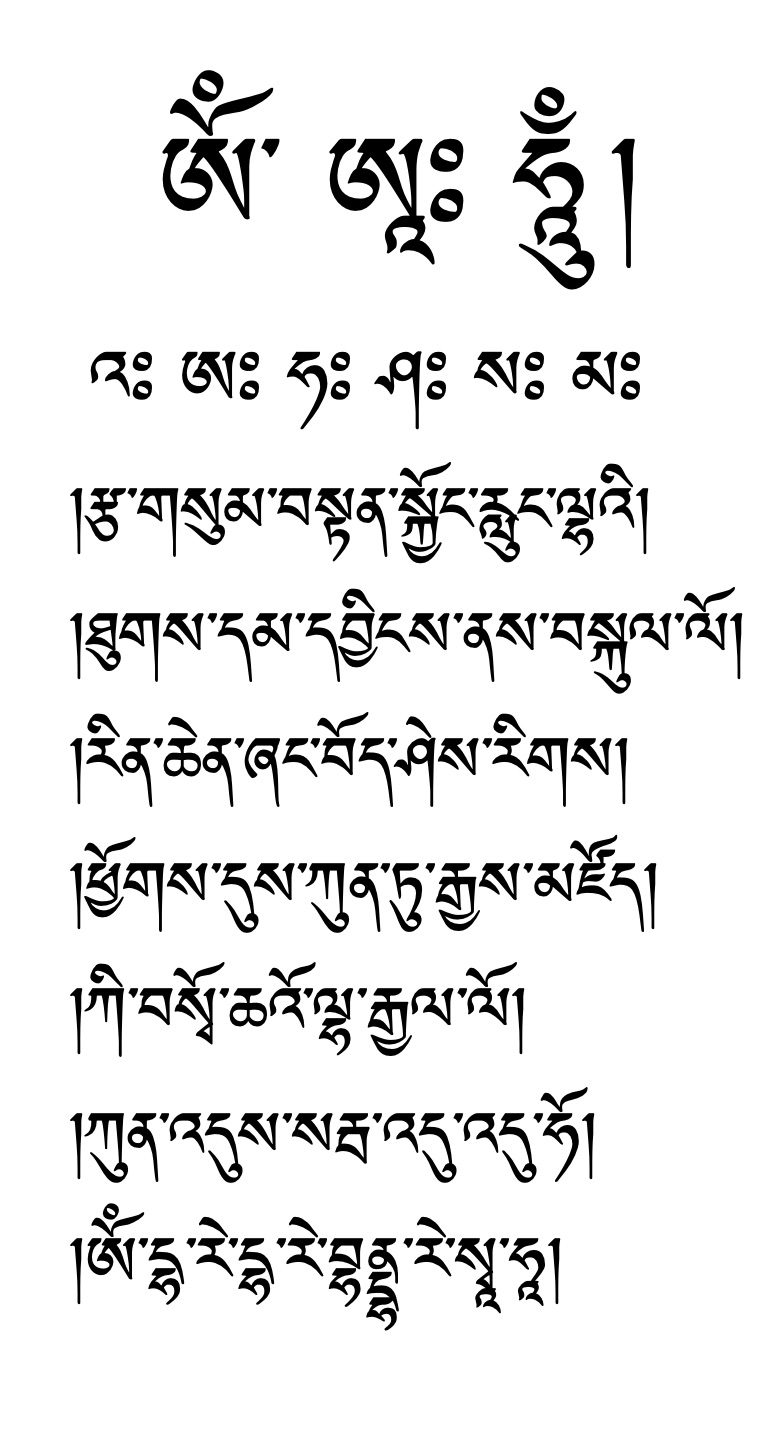 ཨོཾ་ ཨཱཿ ཧཱུྃ།
འཿ ཨཿ ཧཿ ཤཿ སཿ མཿ
།རྩ་གསུམ་བསྟན་སྐྱོང་རླུང་ལྷའི།
།ཐུགས་དམ་དབྱིངས་ནས་བསྐུལ་ལོ།
།རིན་ཆེན་ཞང་བོད་ཤེས་རིགས།
།ཕྱོགས་དུས་ཀུན་ཏུ་རྒྱས་མཛོད།
།ཀི་བསྭོ་ཆའོ་ལྷ་རྒྱལ་ལོ།
།ཀུན་འདུས་སརྦ་འདུ་འདུ་ཧོ།
།ཨོཾ་དྷ་རེ་དྷ་རེ་བྷནྡྷ་རེ་སྭཱ་ཧཱ།